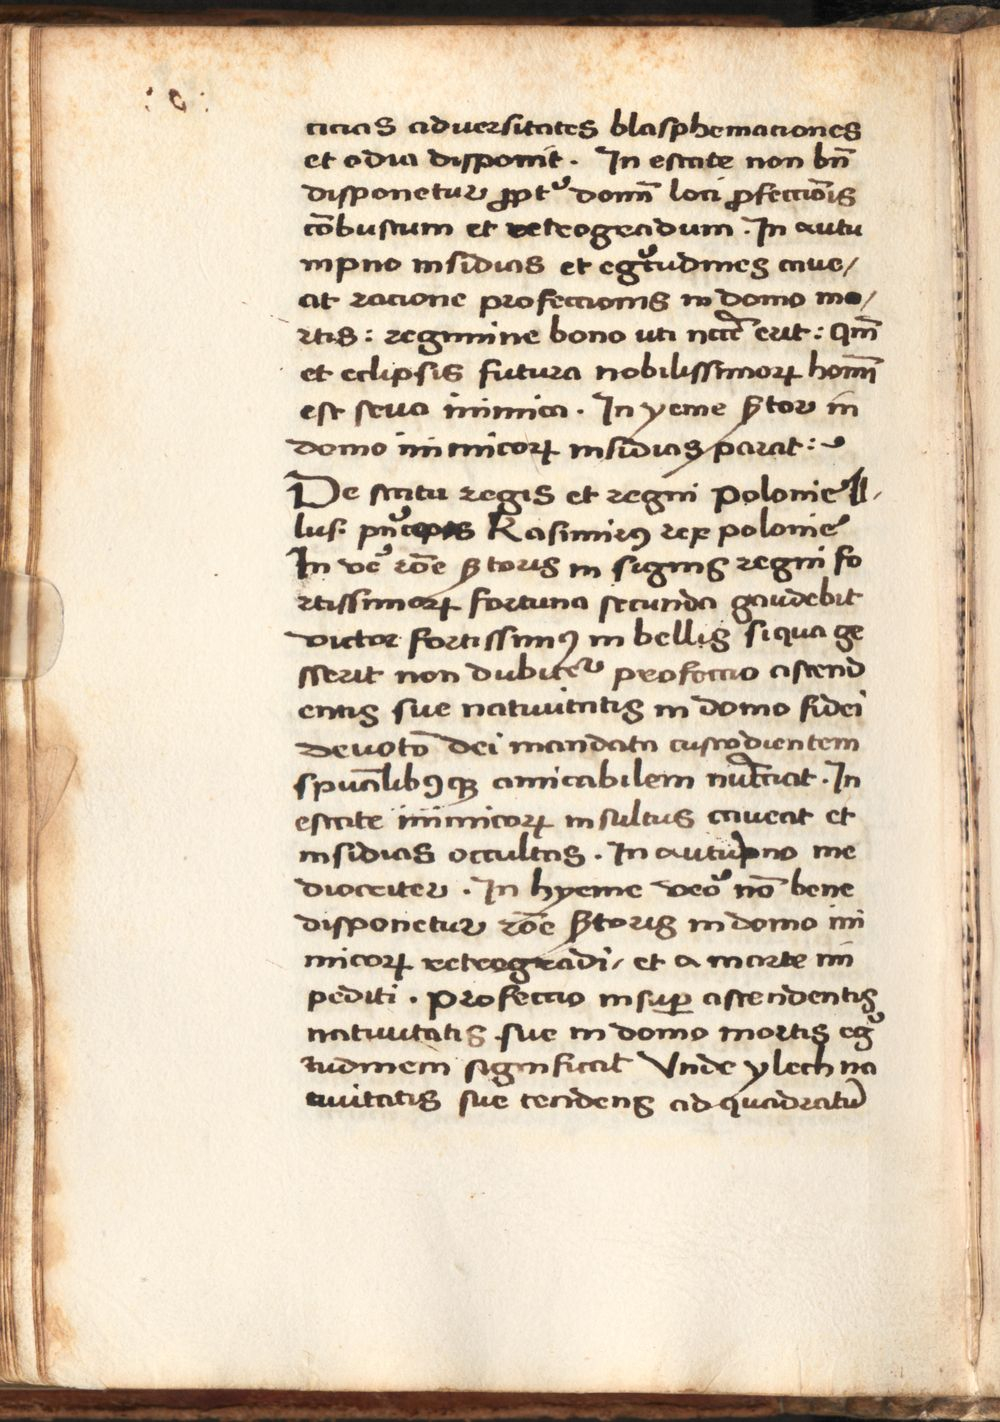 acias adversitates blasphemaciones
et odia disponit. In estate non bn̄
disponetur ꝓpt᷑ domı̅n loci ꝓfeccio̅is
co̅bustum et retrogradum. In autu
mpno insidias et egͥtudines cave/
at racione profeccionis in domo mo/
rtis: regimine bono uti necce̅ erit: qm̅
et eclipsis futura nobilissimoꝝ homı̅
est seva inimica. In yeme S̅tor in
domo inimicoꝝ insidias parat:
De statu regis et regni Polonie Il-
lus. pn̅ceps Kasimirꝯ rex polonie
In ve᷑ ro̅e S̅toris in signis regni fo
rtissimoꝝ fortuna secunda gaudebit
victor fortissimꝯ in bellis siqua ge
sserit non dubite᷑ profeccio ascend
entis sue nativitatis in domo fidei
devoto̅ dei mandata custodientem
spua̅libꝯqꝫ amicabilem nu̅cciat. In
estate inimicoꝝ insultus caveat et
insidias occultas. In autu̅pno me
diocriter. In hyeme veo᷑ no̅ bene
disponetur ro̅e S̅toris in domo ini
micoꝝ retrogradi/ et a marte im
pediti. Profeccio insuꝑ ascendentis
nativitatis sue in domo mortis eg᷑
tudinem significat Unde ylech na
tivitatis sue tendens ad quadratu̅